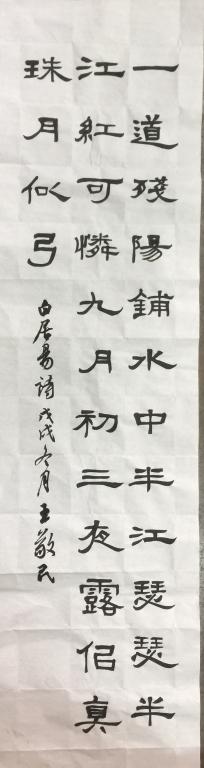 一道殘陽鋪水中半江瑟瑟半
江紅可憐九月初三夜露佀真
珠月似弓
白居易詩戊戌冬月王敬民